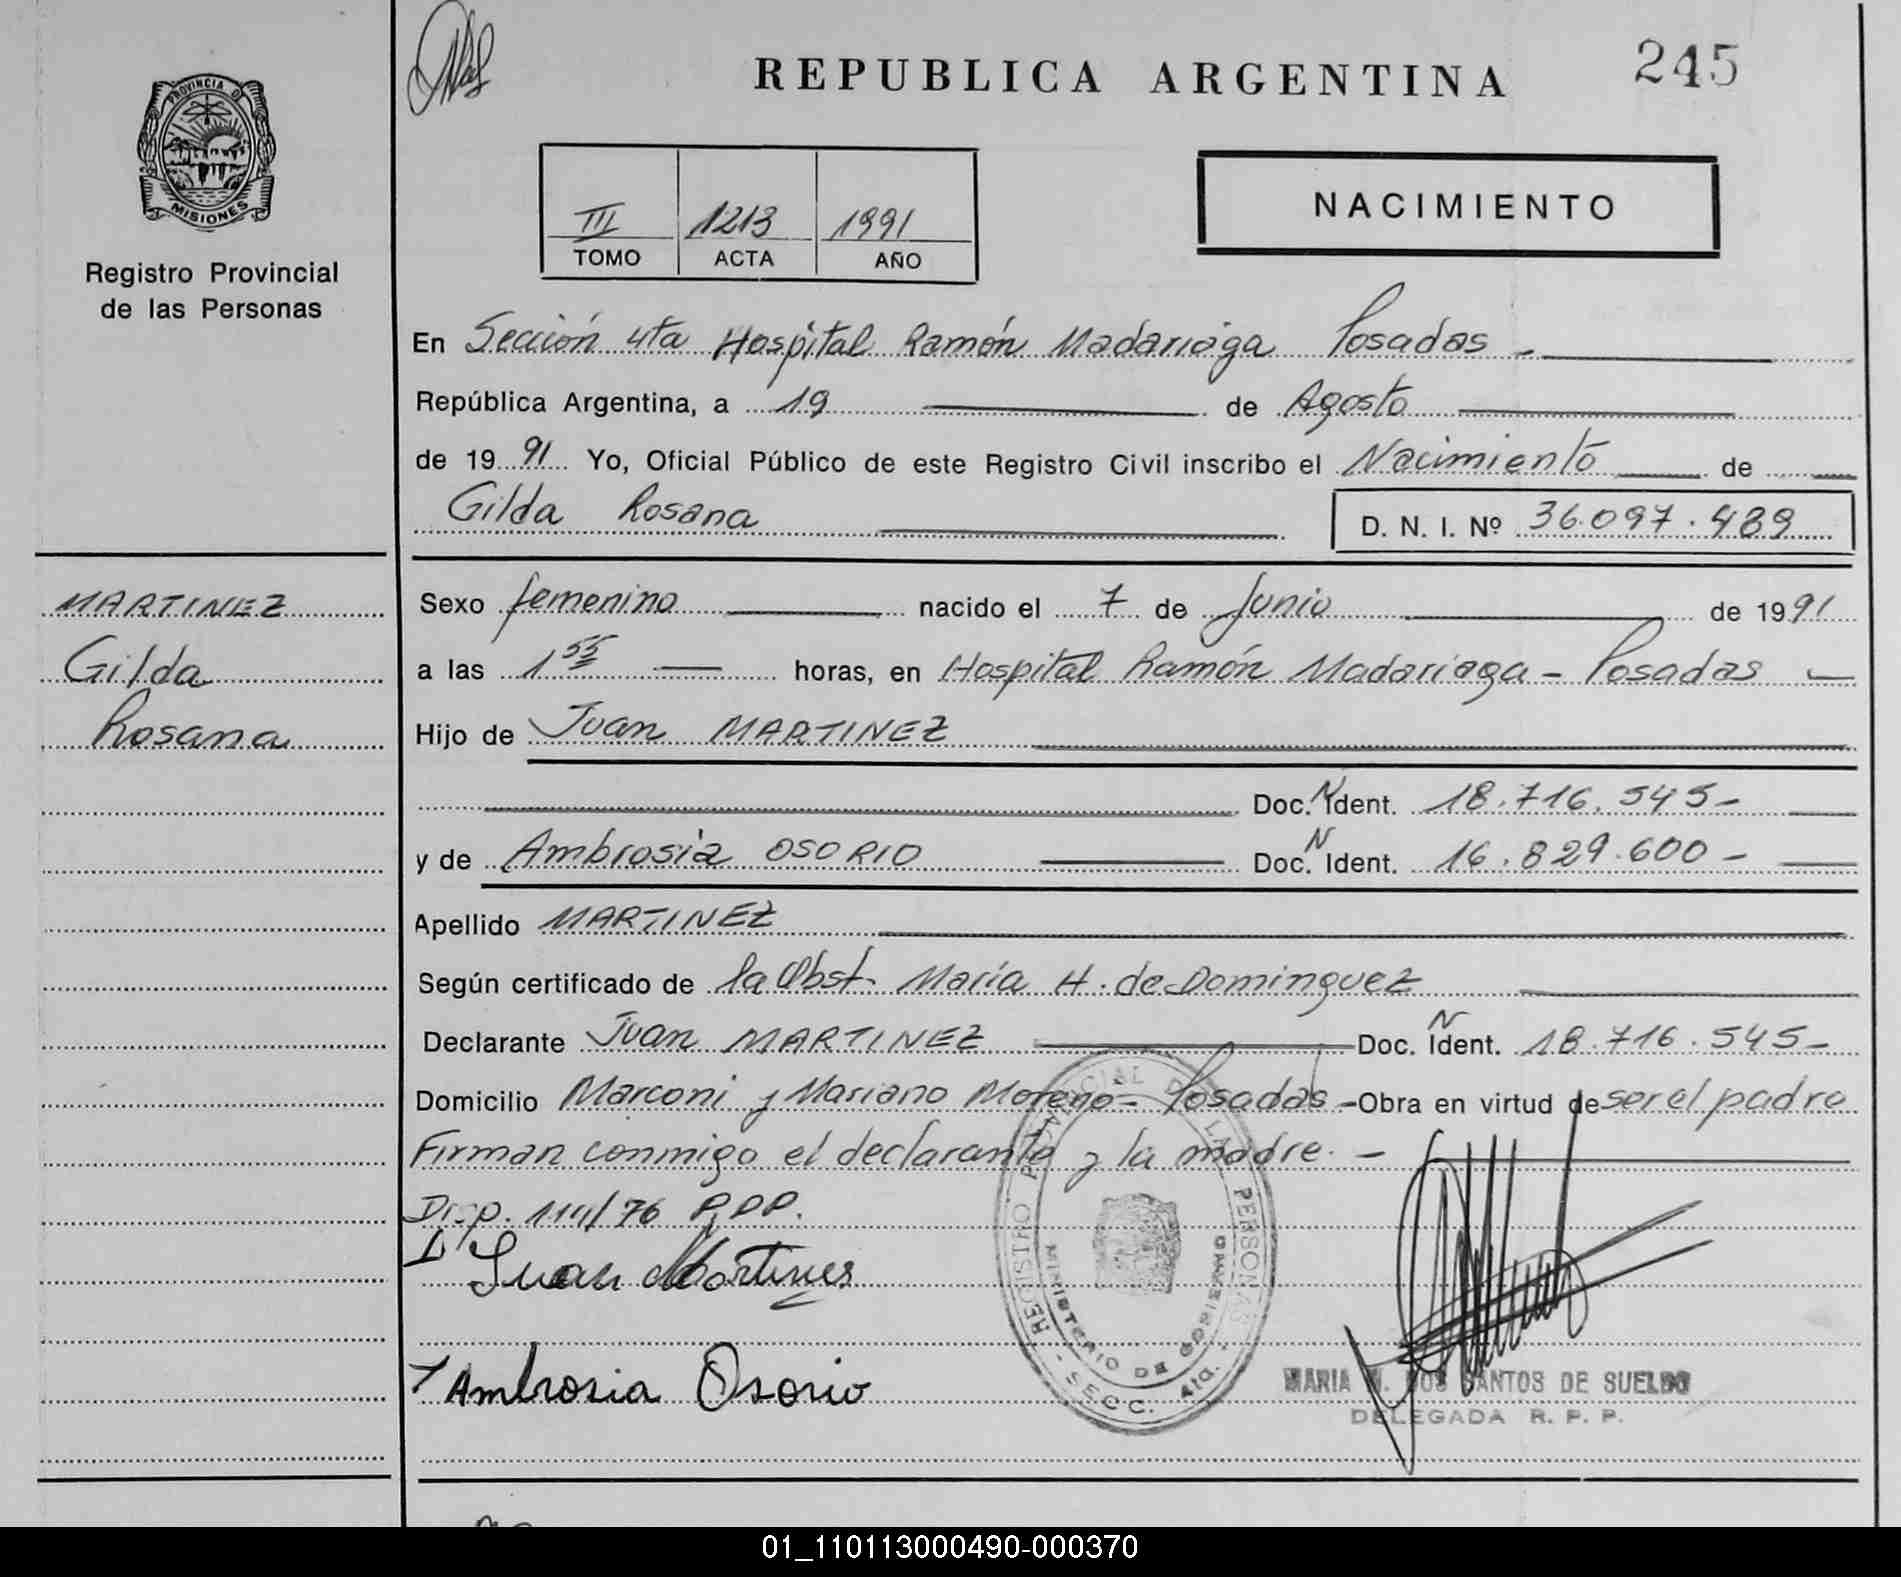 REPUBLICA ARGENTINA
245
PROVINCIA DE
MISIONES
Registro Provincial
de las Personas
III 1213 1991
TOMO ACTA AÑO
NACIMIENTO
En Sección 4ta Hospital Ramón Madariaga Posadas -
República Argentina, a 19 de Agosto
de 1991 Yo, Oficial Público de este Registro Civil inscribo el Nacimiento de
Gilda Rosana
D. N. I. Nº 36.097.489
MARTINEZ
Gilda
Rosana
Sexo femenino nacido el 7 de Junio de 1991
a las 1 55 horas, en Hospital Ramón Madariaga - Posadas -
Hijo de Juan MARTINEZ
Doc. N Ident. 18.716.545-
y de Ambrosia OSORIO Doc. N Ident. 16.829.600-
Apellido MARTINEZ
Según certificado de la Obst. María H. de Dominguez
Declarante Juan MARTINEZ Doc. N Ident. 18.716.545-
Domicilio Marconi y Mariano Moreno - Posadas - Obra en virtud de ser el padre
Firman conmigo el declarante y la madre. -
Disp. 111/76 R.P.P.
Juan Martines
Ambrosia Osorio
REGISTRO PROVINCIAL DE LAS PERSONAS
MINISTERIO DE GOBIERNO
- SECC. 4ta. -
MARIA DOS SANTOS DE SUELDO
DELEGADA R. P. P.
01_110113000490-000370